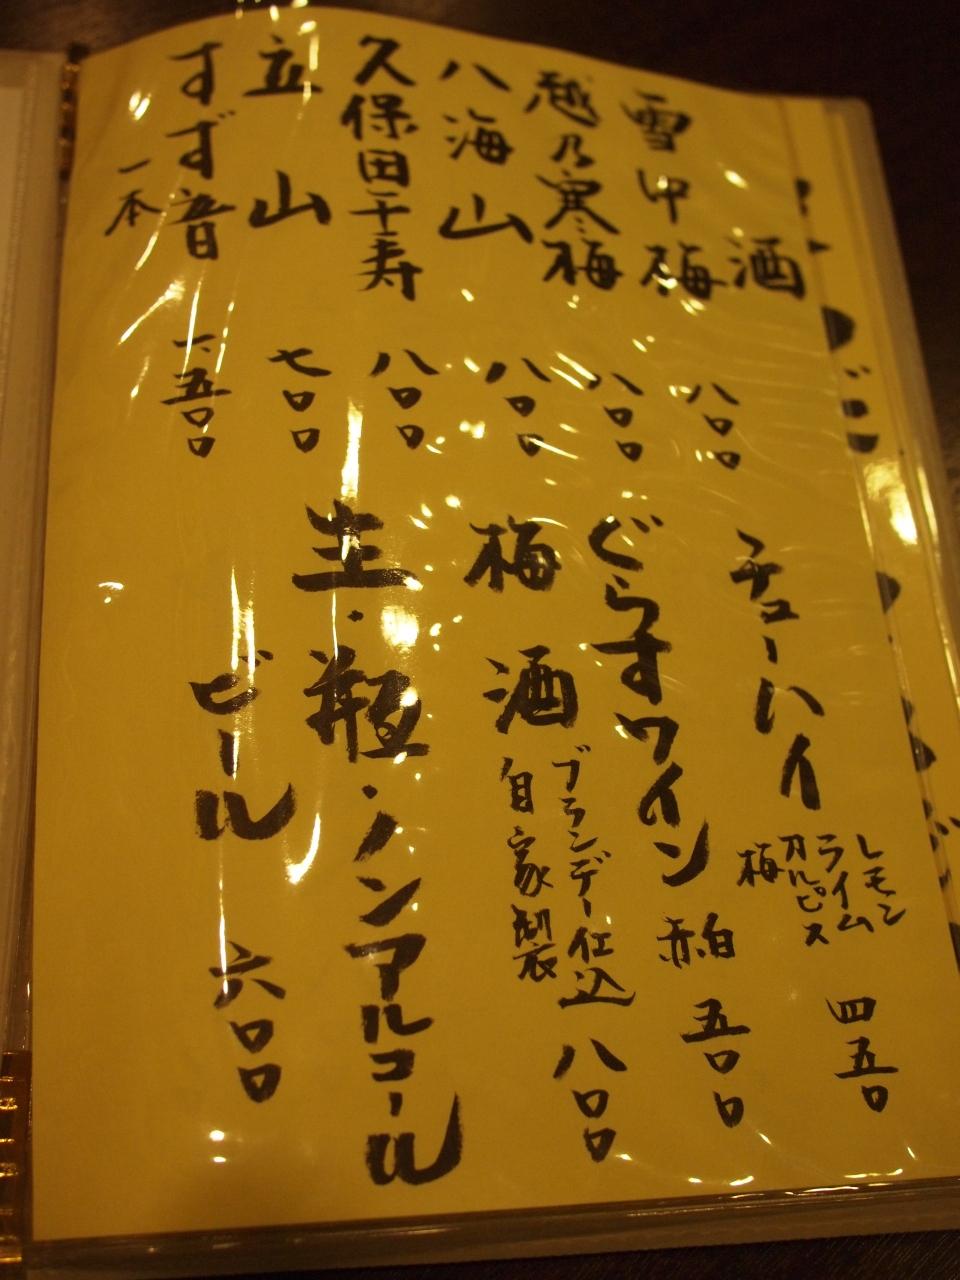 酒
雪中梅 八〇〇
越乃寒梅 八〇〇
八海山 八〇〇
久保田千寿 八〇〇
立山 七〇〇
すず音 一本 一、五〇〇
チューハイ
レモン
ライム
カルピス
梅
四五〇
ぐらすワイン 赤白 五〇〇
梅酒
ブランデー仕込
自家製
八〇〇
生・瓶・ノンアルコール
ビール 六〇〇